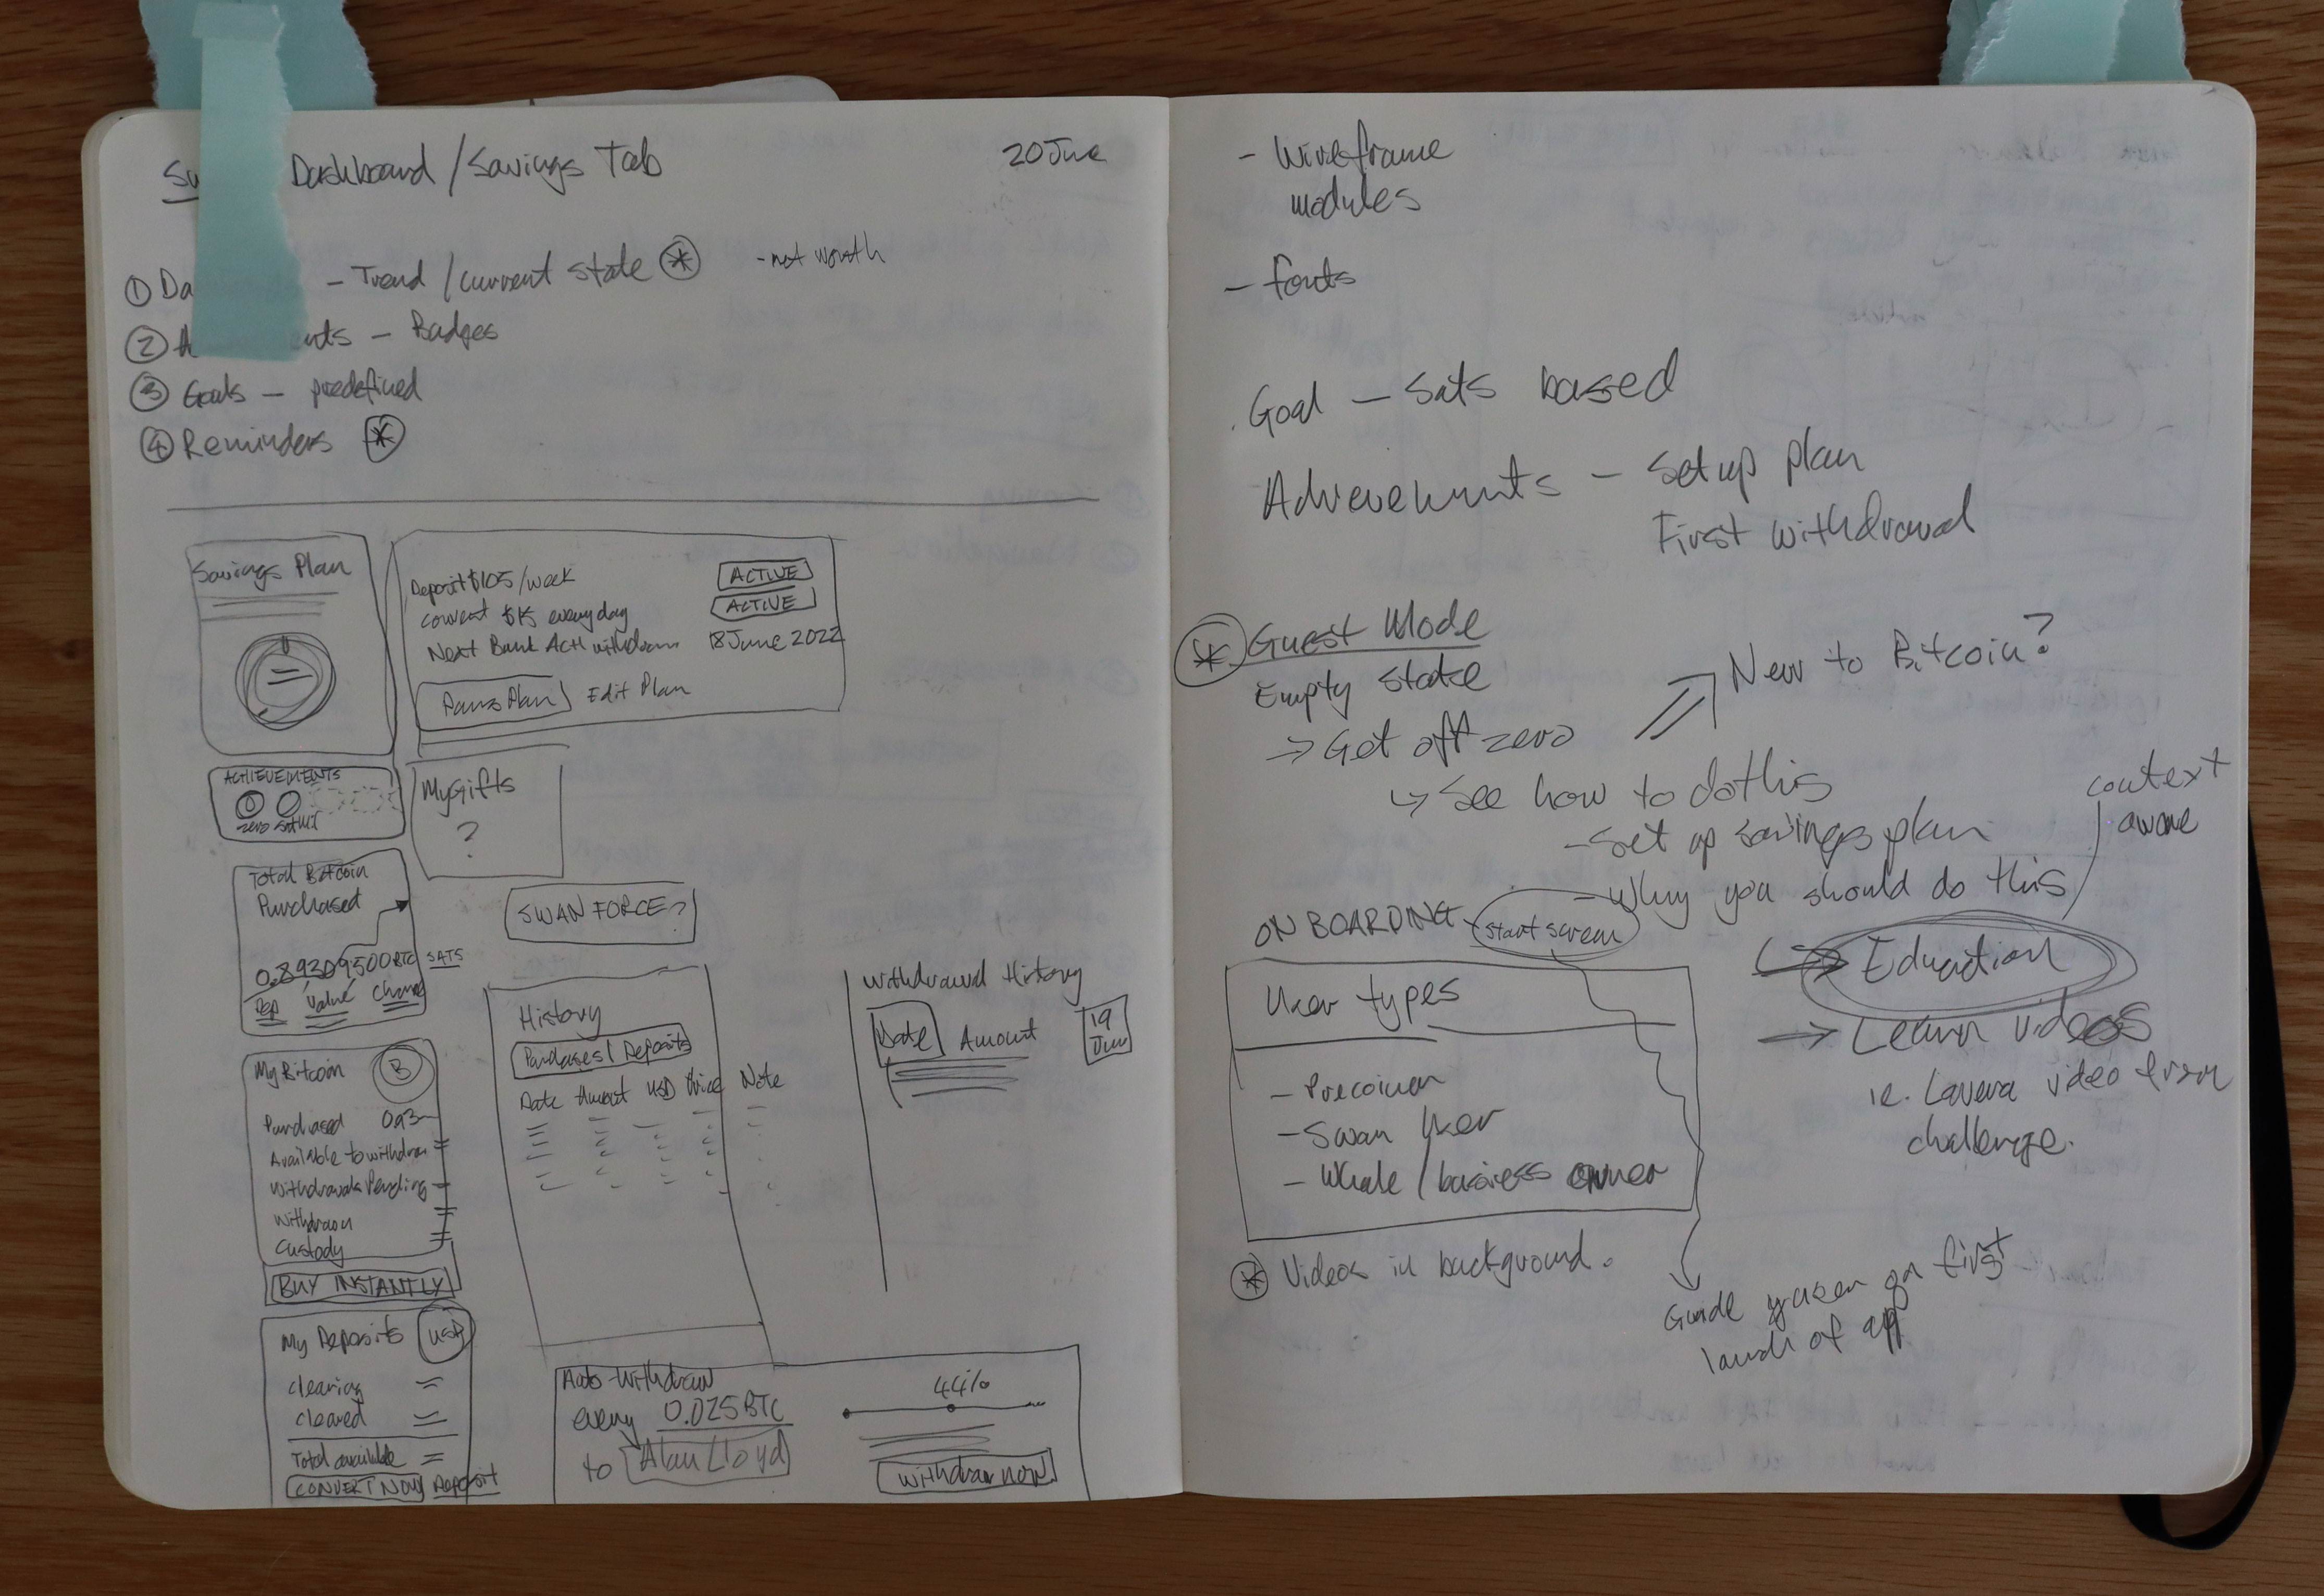 Dashboard / Savings Tab
20 June
① Da – Trend / current state * - net worth
② A nts – Badges
③ Goals – predefined
④ Reminders *
Savings Plan
Deposit $105/week ACTIVE
convert $15 everyday ACTIVE
Next Bank ACH withdrawn 18 June 2022
Pause Plan Edit Plan
ACHIEVEMENTS
zero
My Gifts
?
Total Bitcoin
Purchased
BTC SATS
Value Change
SWAN FORCE?
My Bitcoin B
Purchased
Available to withdraw
Withdrawals Pending
Withdrawn
Custody
BUY INSTANTLY
My Deposits USD
clearing
cleared
Total available
CONVERT NOW Deposit
History
Purchases | Deposits
Date Amount USD Price Note
Withdrawal History
Date Amount
19
Jun
Auto-Withdraw
every 0.025 BTC
to Alan Lloyd
44%
withdraw now
- Wireframe
modules
- fonts
Goal – Sats based
Achievements – Set up plan
First withdrawal
* Guest Mode
Empty State
→ Get off zero
New to Bitcoin?
↳ See how to do this
- Set up savings plan
- Why you should do this
context
aware
ON BOARDING - start screen
Education
→ Learn videos
ie. video from
challenge.
User types
- Precoiner
- Swan User
- Whale / business owner
* Videos in background.
Guide user on first
launch of app